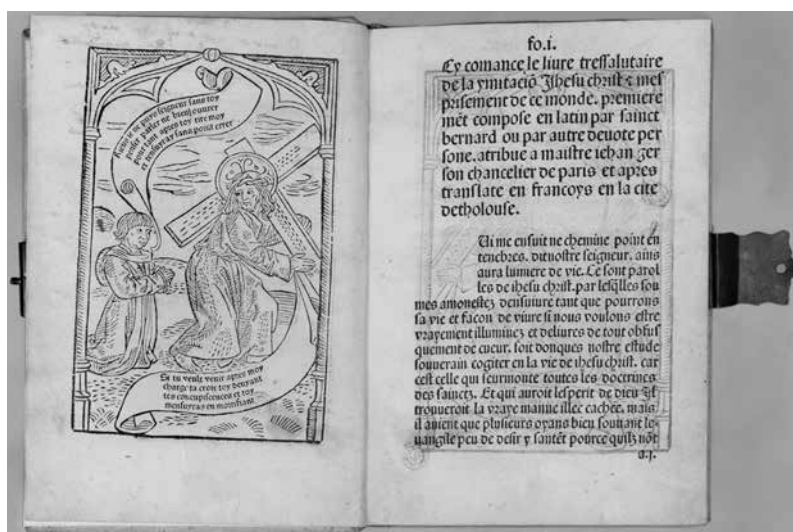 Riens ie ne puys seigneur sans toy
penser parler ne bien ouurer
pour tant apres toy tire moy
et ten suyuray sans point errer
Si tu veulx venir apres moy
charge ta croix toy deuyant
tes concupiscences et toy
mensuyuras en mourant
fo.i.
Cy comance le liure tressalutaire
de la ymitaciō Jhesu christ ⁊ mes
prisement de ce monde. premiere
mēt compose en latin par sainct
bernard ou par autre deuote per
sone. atribue a maistre iehan ger
son chancelier de paris et apres
translate en francoys en la cite
detholouse.
Ui me ensuit ne chemine point en
tenebres, dit nostre seigneur. ains
aura lumiere de vie. Ce sont parol
les de ihesu christ. par lesq̄lles sou
mes amonestez densuiure tant que pourrons
sa vie et facon de viure si nous voulons estre
vrayement illuminez et deliures de tout obfus
quement de cueur. soit donques nostre estude
souuerain cogiter en la vie de ihesu christ. car
cest celle qui seurmonte toutes les doctrines
des sainctz. Et qui auroit lesperit de dieu il
trouueroit la vraye manne illec cachee. mais
il auient que plusieurs oyans bien souuant le
uangile peu de desir y santēt pource quilz nōt
a.j.